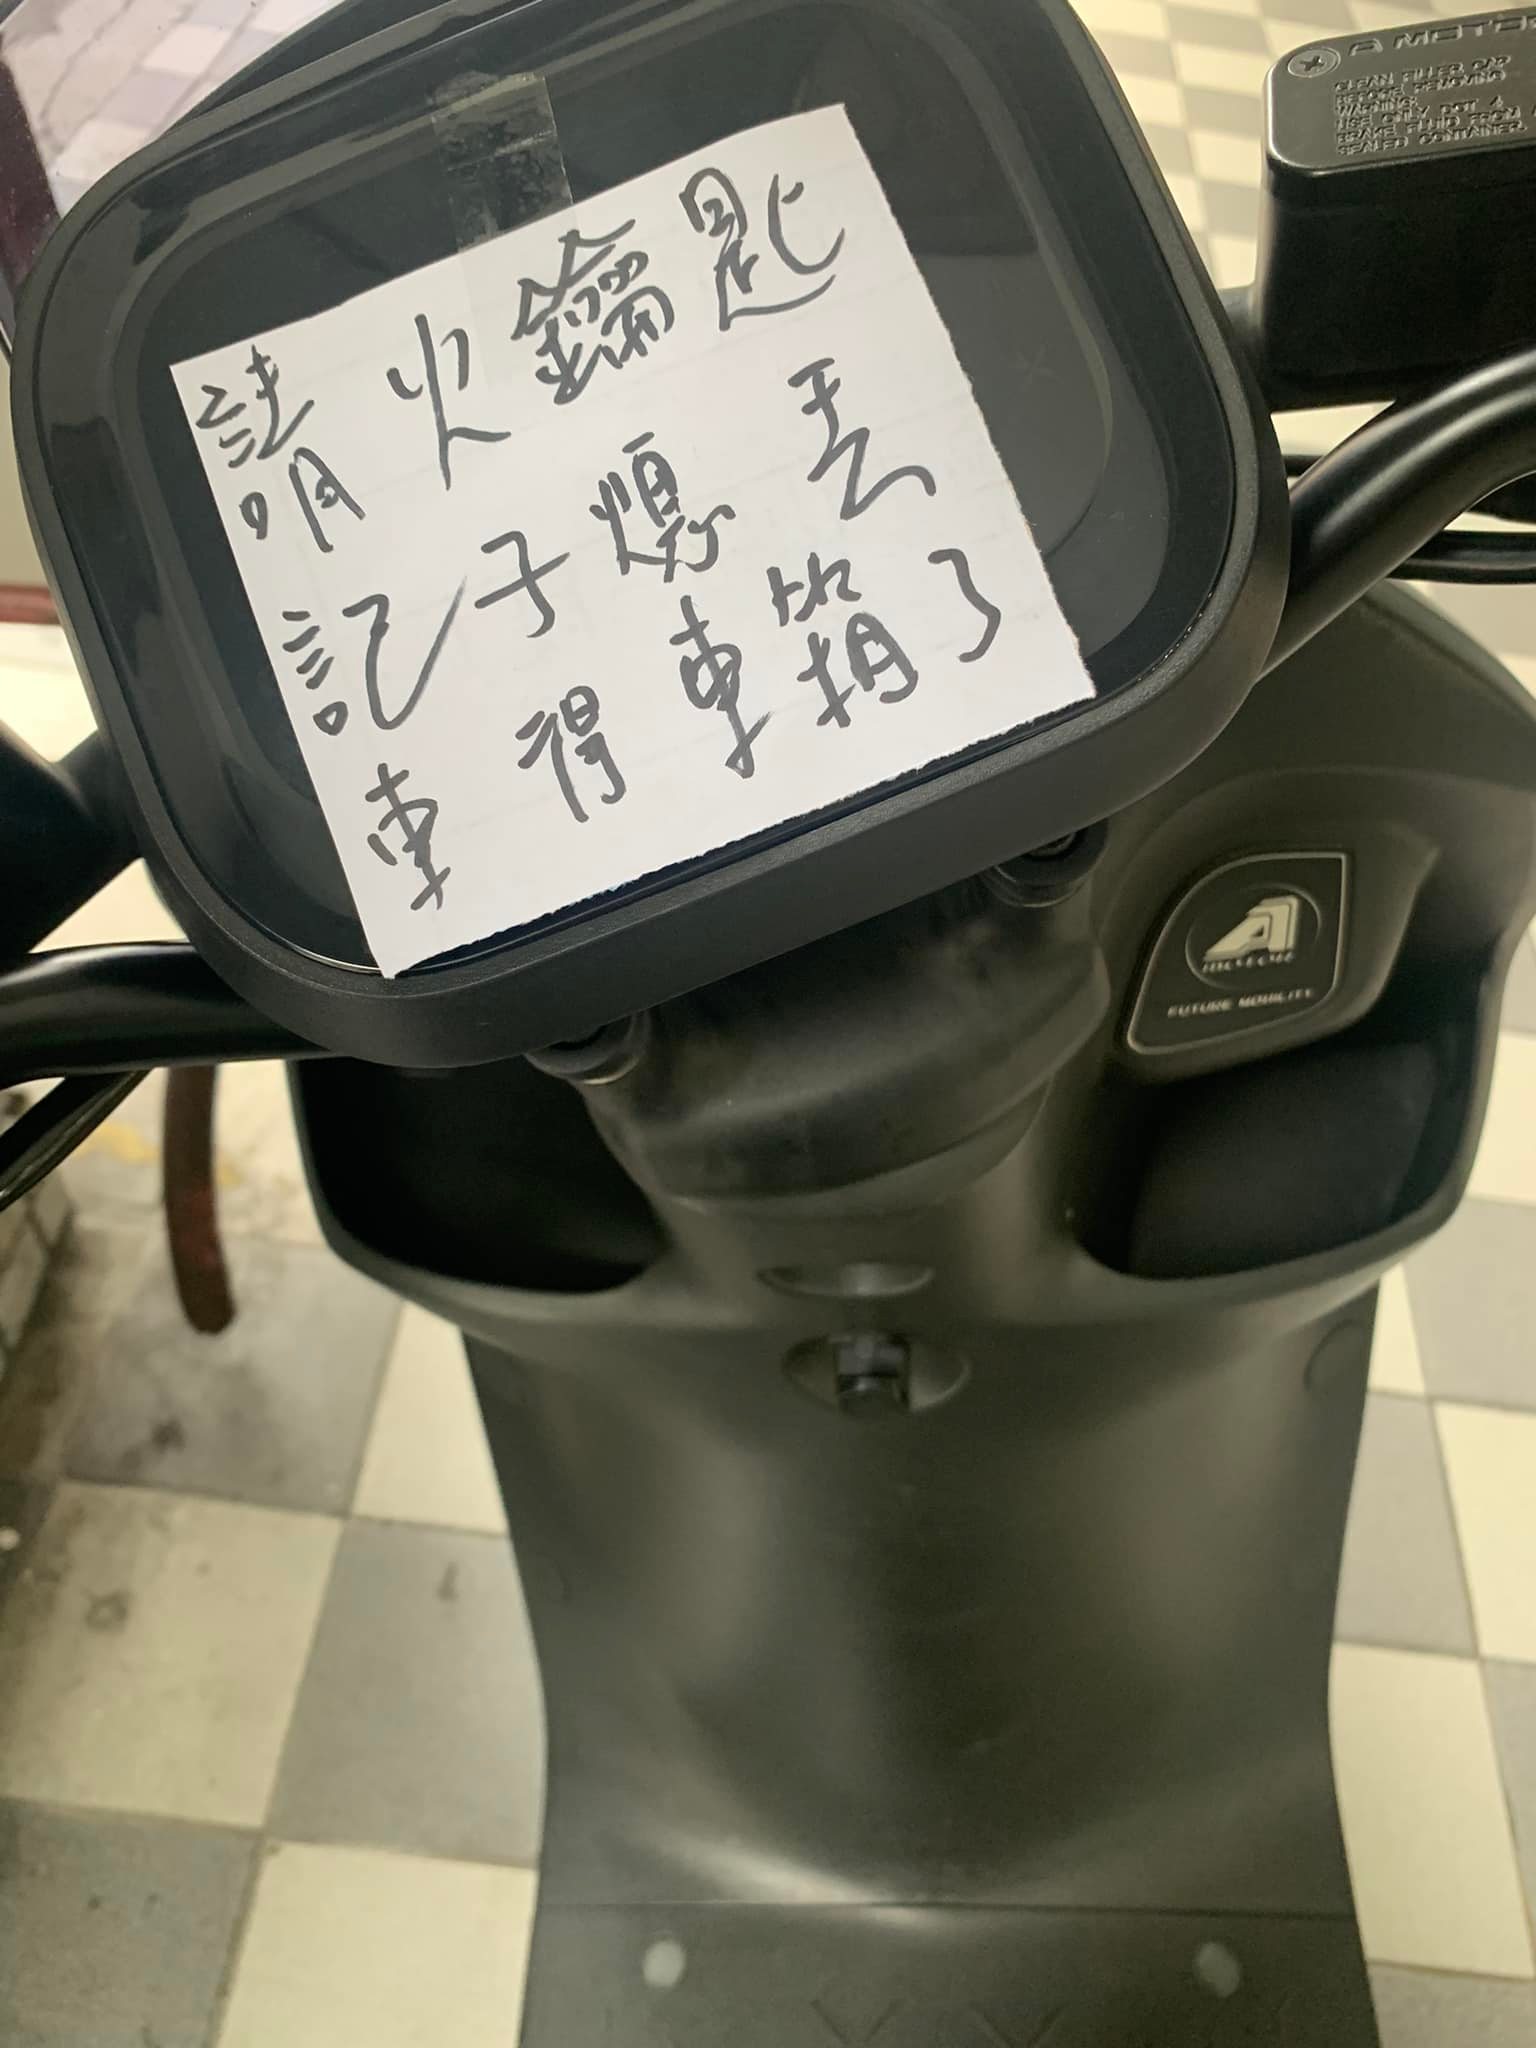 請火鑰匙
記子熄丟
車得車箱了
A MOTOR
CLEAN FILLER CAP
BEFORE REMOVING
WARNING:
USE ONLY DOT 4
BRAKE FLUID FROM
SEALED CONTAINER.
FUTURE MOBILITY